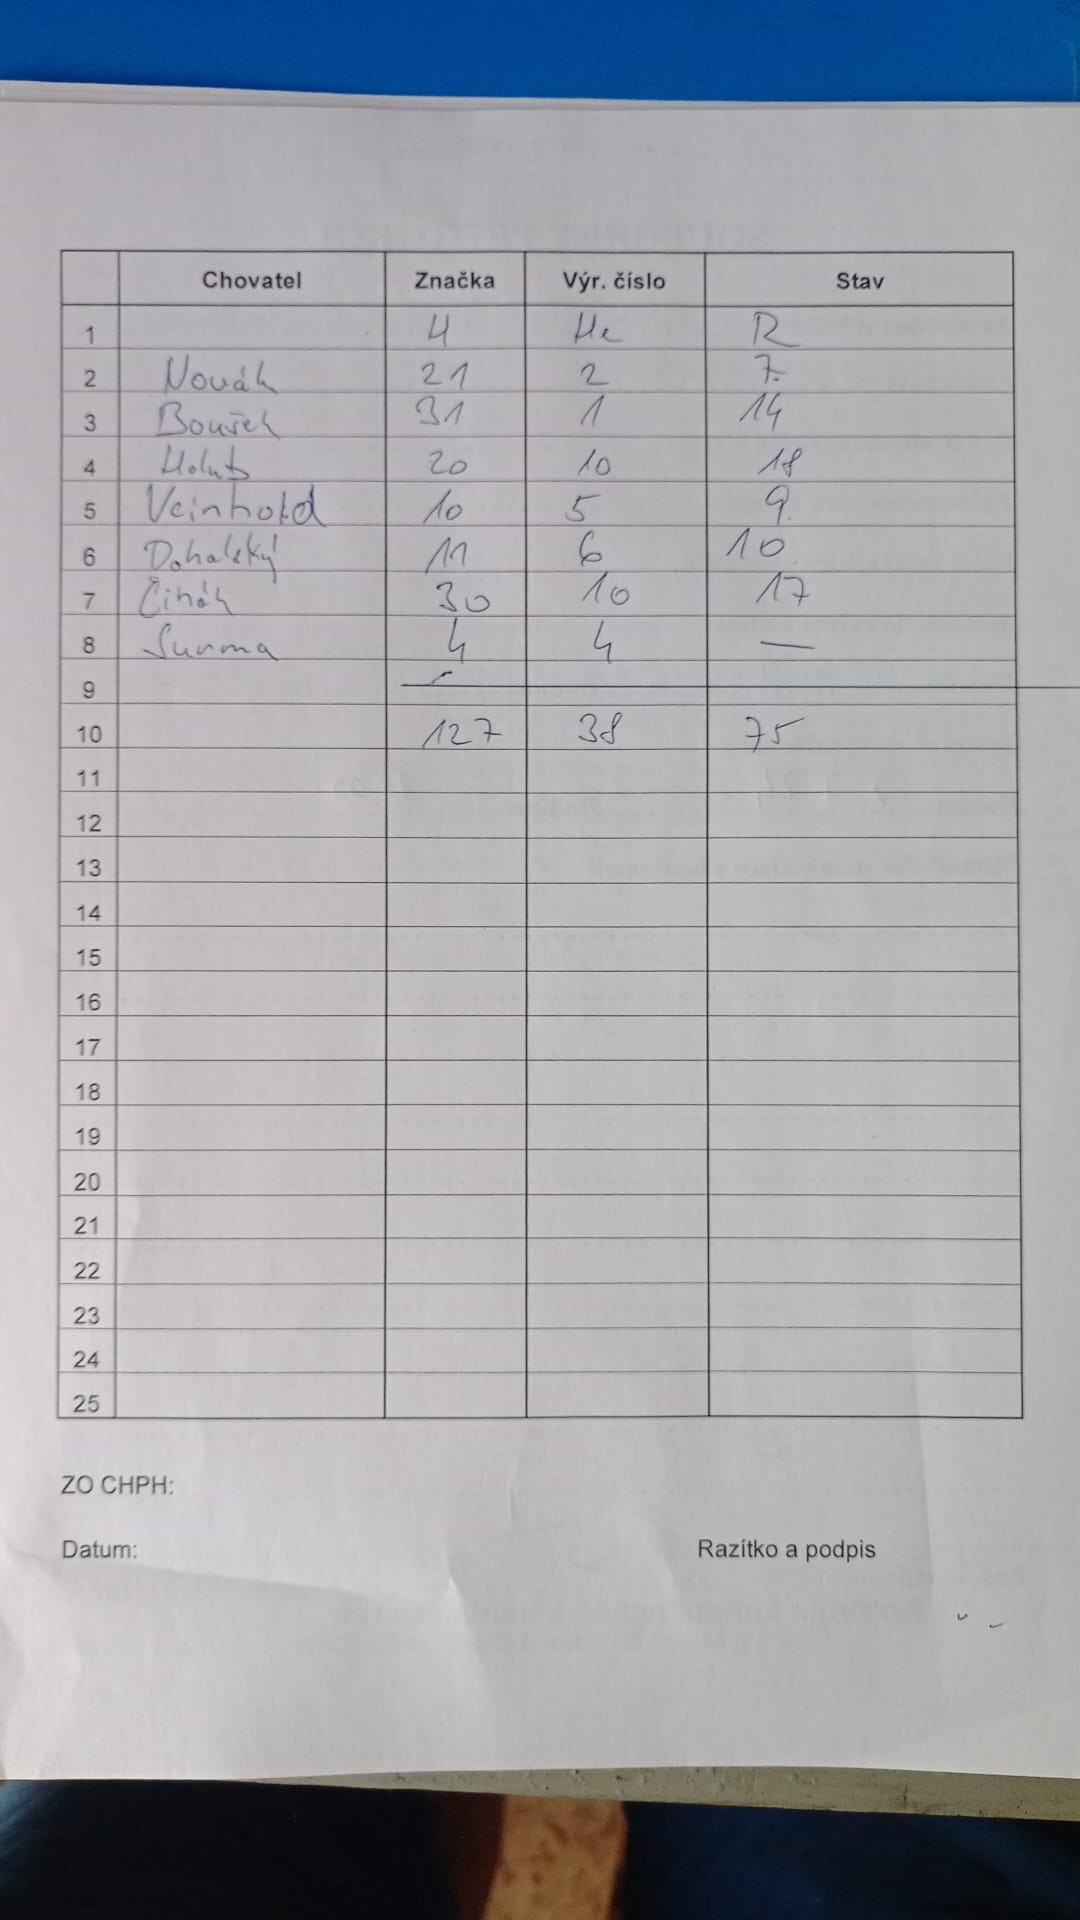 Chovatel Značka Výr. číslo Stav
1 H He R
2 Novák 21 2 7
3 Bouřek 31 1 14
4 Holub 20 10 18
5 Veinhold 10 5 9
6 Dohalský 11 6 10
7 Čihák 30 10 17
8 Surma 4 4 —
9
10 127 38 75
11
12
13
14
15
16
17
18
19
20
21
22
23
24
25
ZO CHPH:
Datum: Razítko a podpis